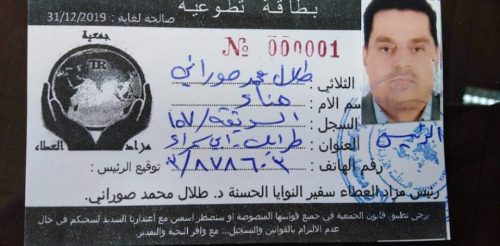 بطاقة تطوعية
صالحة لغاية : 31/12/2019
جمعية
№ 000001
TR
مزاد العطاء
الثلاثي : طلال محمد صوراني
اسم الام : هناء
السجل :
العنوان : طرابلس
رقم الهاتف : ٣/٨٧٨٦٠٣
توقيع الرئيس :
الرئيس
رئيس مزاد العطاء سفير النوايا الحسنة د. طلال محمد صوراني.
يرجى تطبيق قانون الجمعية في جميع قوانينها المنصوصة او سنضطر اسفين مع أعتذارنا الشديد لسحبكم في حال
عدم الالتزام بالقوانين والتسجيل... مع وافر التحية والتقدير.